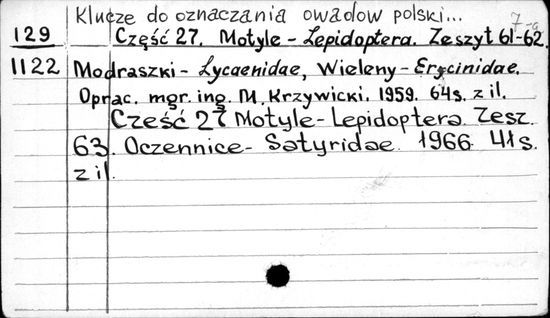 Klucze do oznaczania owadow polski...
129 Część 27. Motyle - Lepidoptera. Zeszyt 61-62.
1122 Modraszki - Lycaenidae, Wieleny - Erycinidae.
Oprac. mgr. ing. M. Krzywicki. 1959. 64s. z il.
Cześć 27 Motyle - Lepidoptera. Zesz.
63. Oczennice - Satyridae. 1966. 41s.
z il.